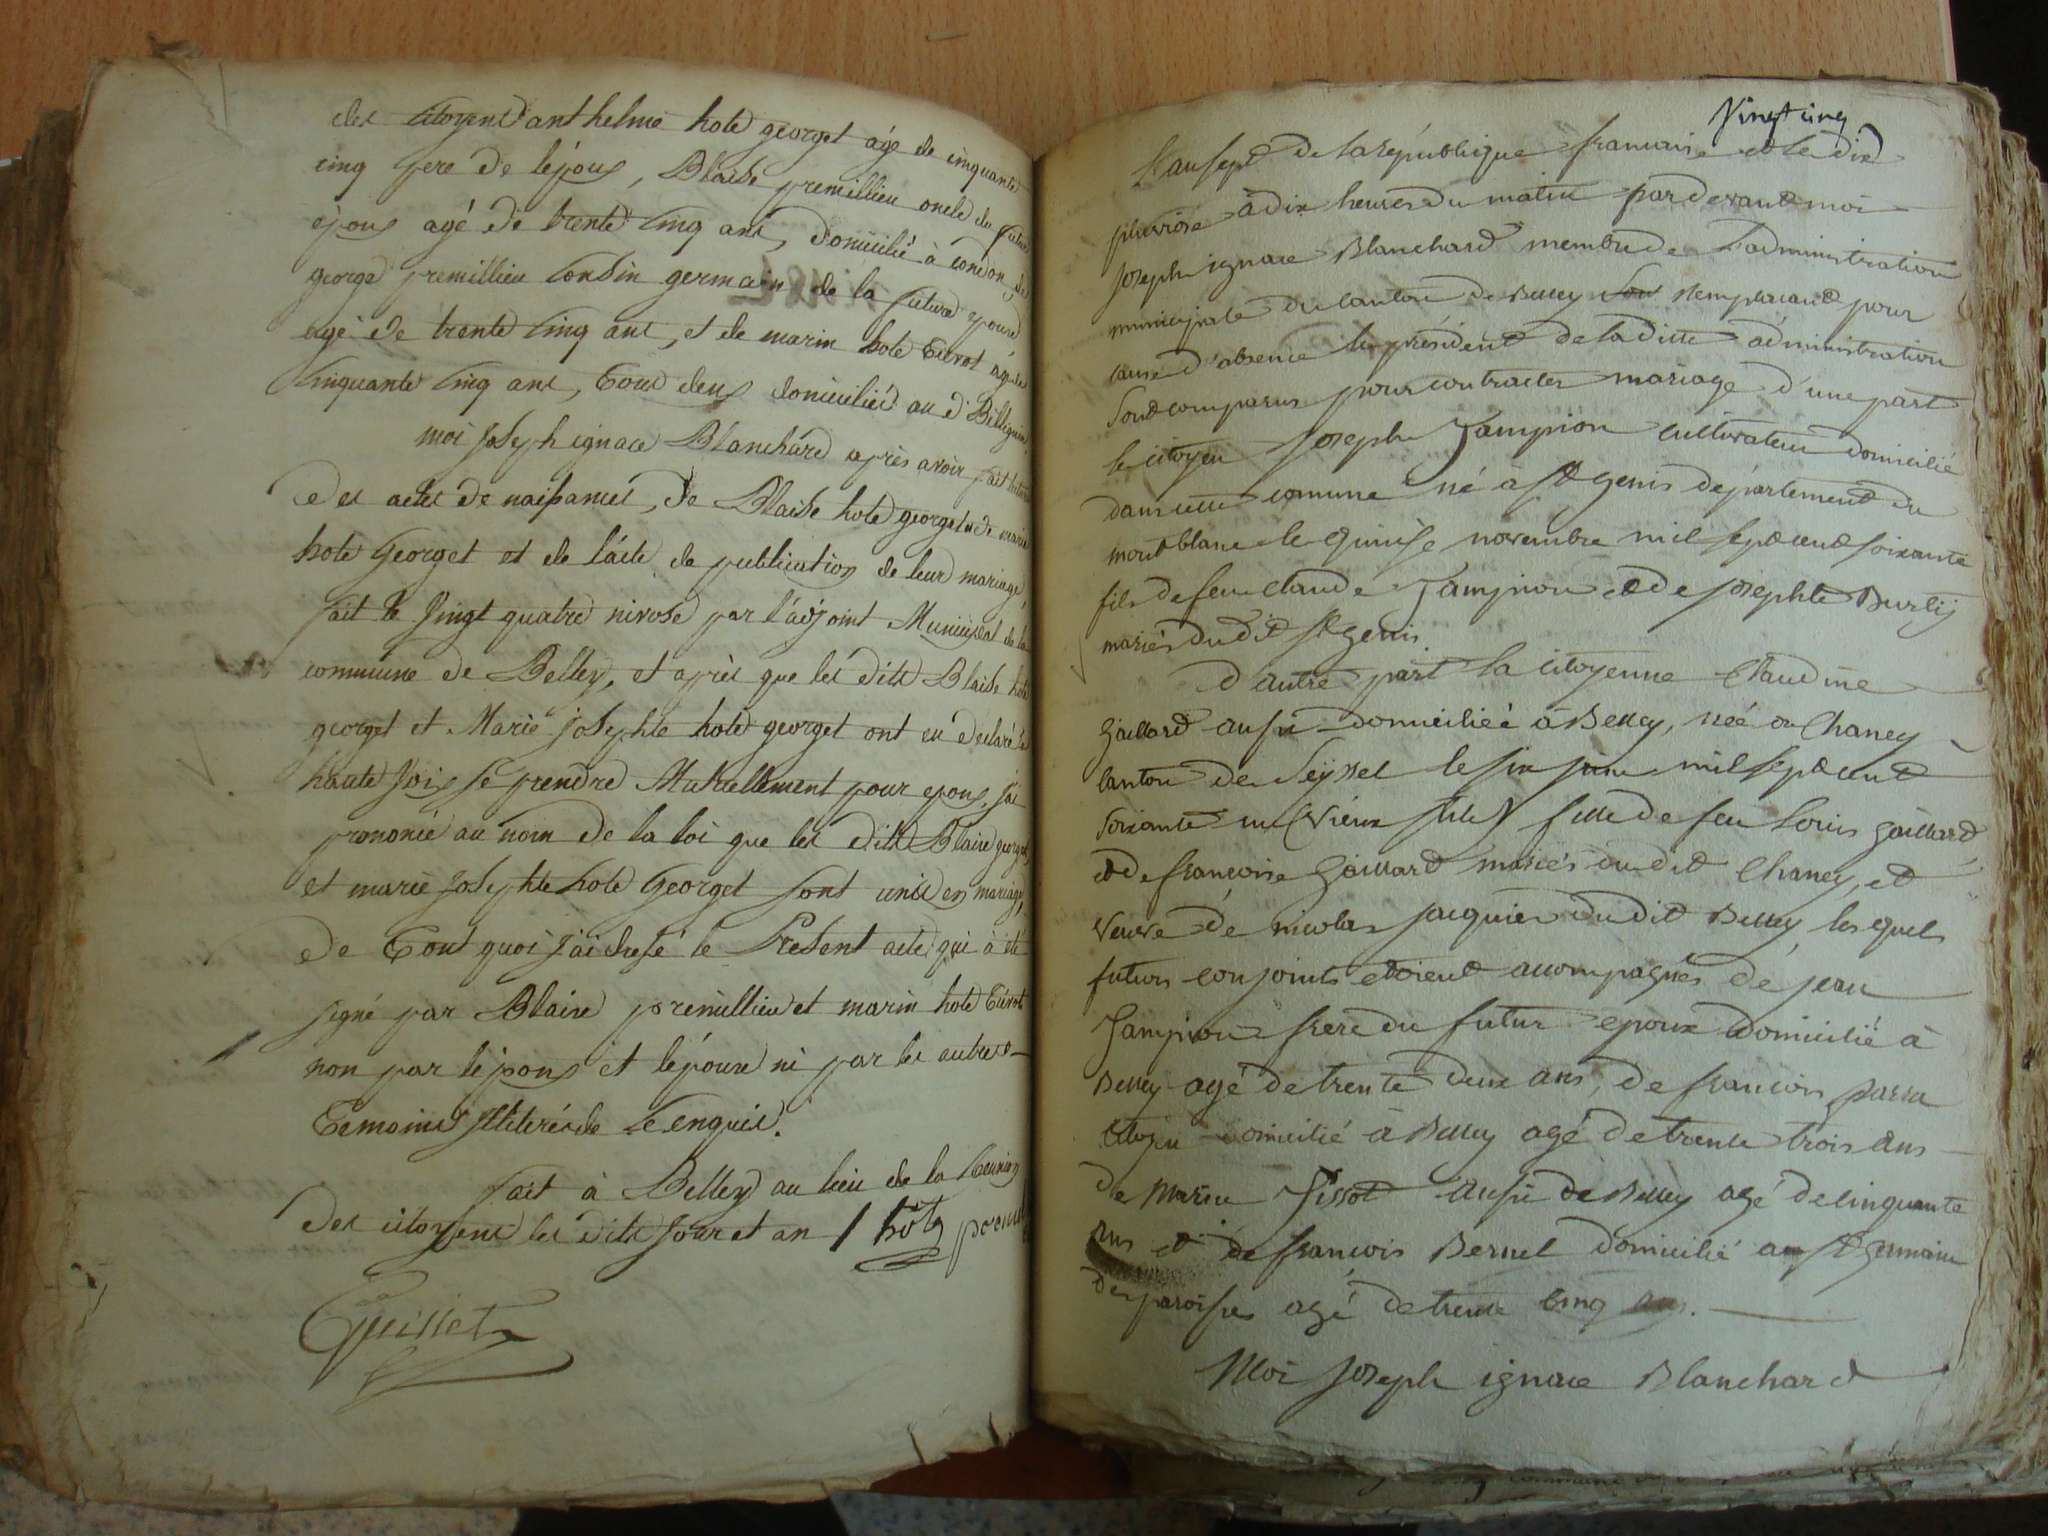 des citoyens anthelme hote georget agé de cinquante
cinq pere de lépoux, Blaise premillieu oncle du futur
époux agé de trente cinq ans, domicilié à condon, de
george premillieu cousin germain de la future épouse
agé de trente cinq ans, et de marin hote Eivrot agé de
Cinquante cinq ans, tous deux domiciliés au d. Billignin
moi joseph ignace Blanchard après avoir fait lecture
des actes de naissances, de Blaise hote georget et de marie
hote Georget et de l'acte de publication de leur mariage,
fait le vingt quatre nivose par l'adjoint Municipal de la
commune de Belley, et après que les dits Blaise hote
georget et Marie josephte hote georget ont eu declaré à
haute voix se prendre Mutuellement pour epoux, j'ai
prononcé au nom de la loi que les dits Blaise georget
et marie Josephte hote Georget sont unis en mariage,
de tout quoi j'ai dressé le Present acte qui à été
signé par Blaise premillieu et marin hote Eivrot
non par l'époux et l'épouse ni par les autres
temoins illiterés de ce enquis.
fait à Belley au lieu de la reunion
des citoyens les dits Jour et an / hôte premil
Guillet
Vingt cinq
L'an sept de la république francaise et le dix
pluviose à dix heures du matin pardevant moi
joseph ignace Blanchard membre de l'administration
municipale du canton de Belley remplacant pour
cause d'absence le président de la ditte administration
sont comparus pour contracter mariage d'une part
le citoyen joseph Jampion cultivateur domicilié
dans cette comune né à st genis département du
mont blanc le quinse novembre mil sept cent soixante
fils de feu claude Jampion et de josephte Burlij
mariés du dit st genis.
D'autre part la citoyenne Claudine
Gaillard aussi domiciliée à Belley, née au Chaney
canton de Seÿssel le six juin mil sept cent
soixante un (vieux stile) fille de feu Louis Gaillard
et de francoise Gaillard mariés du dit Chaney, et
veuve de nicolas jacquier du dit Belley, les quels
futurs conjoints etoient accompagnés de jean
Jampion frere du futur epoux domicilié à
Belley agé de trente deux ans, de francois parra
citoyen domicilié à Belley agé de trente trois ans
de Marin Tissot aussi de Belley agé de cinquante
ans et de francois Bernel domicilié au st germain
des paroisses agé de trente cinq ans.
Moi joseph ignace Blanchard